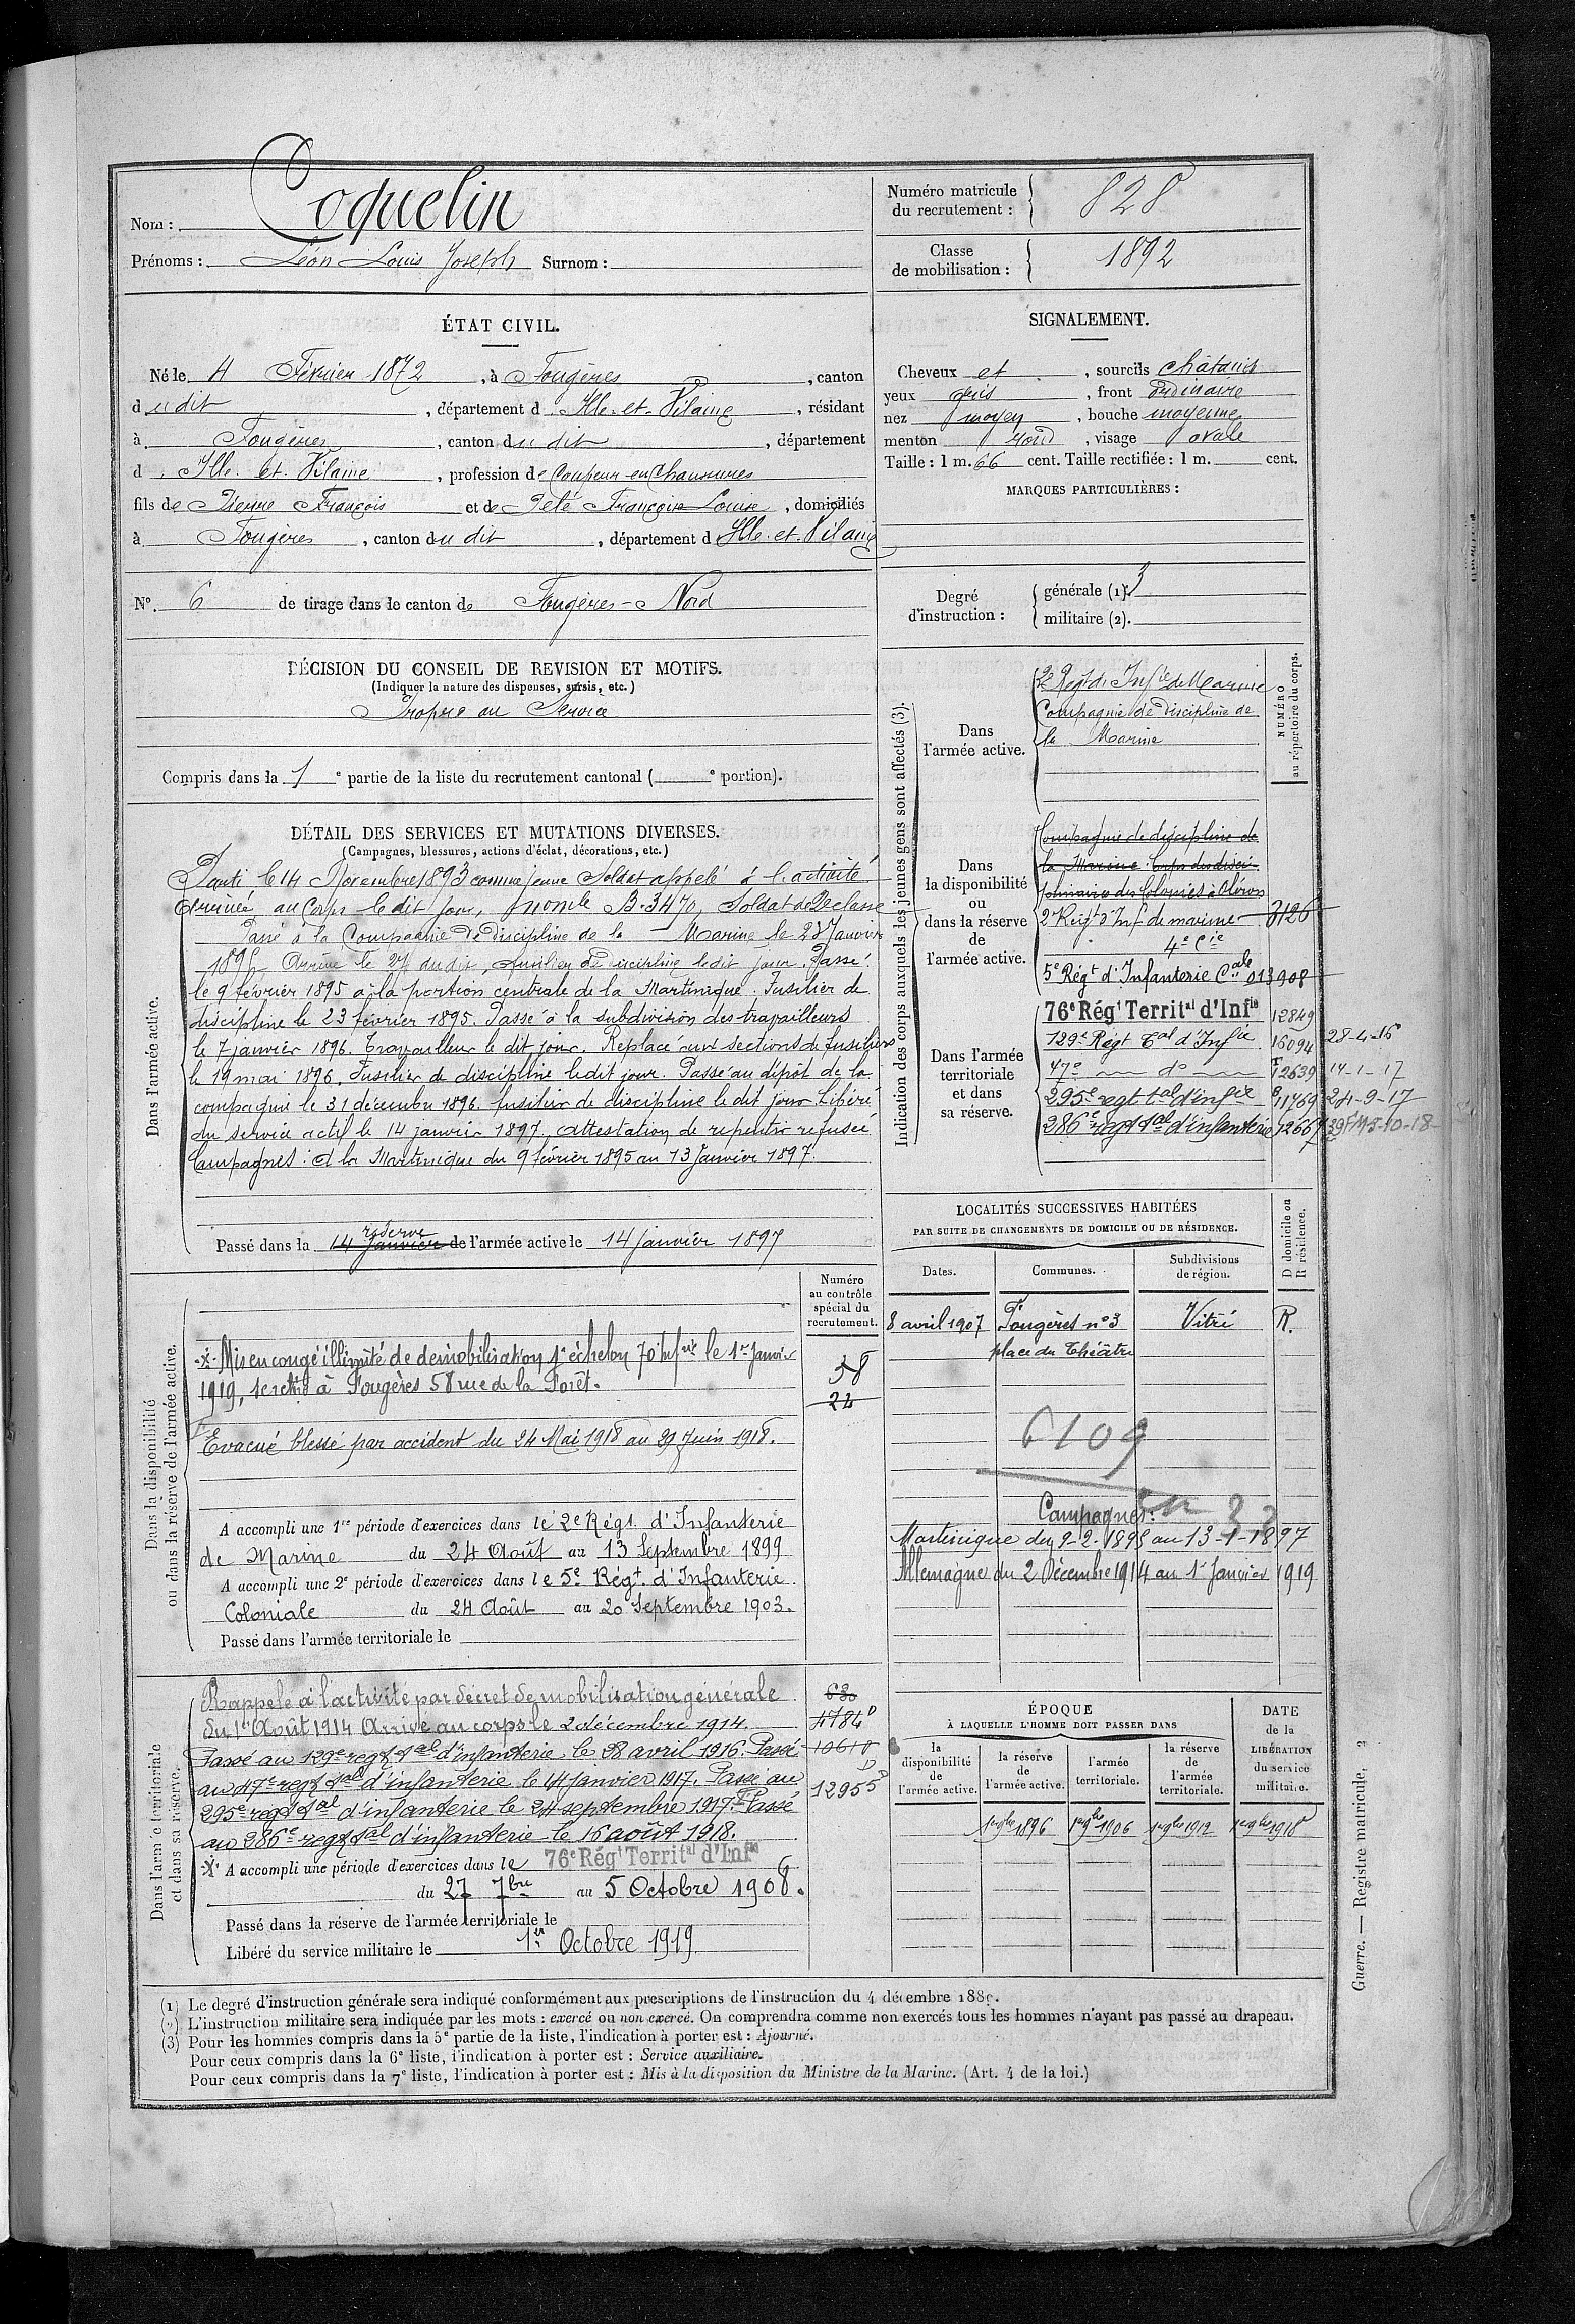 Nom : Coquelin
Prénoms : Léon Louis Joseph Surnom :
Numéro matricule du recrutement : 828
Classe de mobilisation : 1892
ÉTAT CIVIL.
Né le 4 Février 1872, à Fougères, canton
dudit, département d'Ille-et-Vilaine, résidant
à Fougères, canton dudit, département
d'Ille-et-Vilaine, profession de Coupeur en Chaussures
fils de Pierre François et de Françoise Louise, domiciliés
à Fougères, canton dudit, département d'Ille-et-Vilaine
N°. 6 de tirage dans le canton de Fougères-Nord
SIGNALEMENT.
Cheveux et, sourcils châtains
yeux gris, front ordinaire
nez moyen, bouche moyenne
menton rond, visage ovale
Taille : 1 m. 66 cent. Taille rectifiée : 1 m. cent.
MARQUES PARTICULIÈRES :
Degré d'instruction : générale (1). 3
militaire (2).
DÉCISION DU CONSEIL DE REVISION ET MOTIFS.
(Indiquer la nature des dispenses, sursis, etc.)
Propre au Service
Compris dans la 1e partie de la liste du recrutement cantonal ( e portion).
DÉTAIL DES SERVICES ET MUTATIONS DIVERSES.
(Campagnes, blessures, actions d'éclat, décorations, etc.)
Dans l'armée active.
Parti le 14 Novembre 1893 comme jeune Soldat appelé à l'activité
Arrivée au Corps le dit jour, B. 3470, Soldat de 2e classe
Passé à la Compagnie de discipline de la Marine le 28 Janvier
1895 Arrivé le dudit, fusilier de discipline ledit jour. Passé
le 9 février 1895 à la portion centrale de la Martinique. Fusilier de
discipline le 23 février 1895. Passé à la subdivision des travailleurs
le 7 janvier 1896. Travailleur le dit jour. Replacé aux sections de fusiliers
le 19 mai 1896. Fusilier de discipline ledit jour. Passé au dépôt de la
compagnie le 31 décembre 1896. fusilier de discipline le dit jour Libéré
du service actif le 14 janvier 1897, attestation de repentir refusée
Campagnes : A la Martinique du 9 février 1895 au 13 Janvier 1897.
Passé dans la 14 Janvier réserve de l'armée active le 14 Janvier 1897
Indication des corps auxquels les jeunes gens sont affectés (3).
NUMÉRO au répertoire du corps.
Dans l'armée active.
2e Régt d'Infie de Marine
Compagnie de discipline de
la Marine
Dans la disponibilité ou dans la réserve de l'armée active.
Compagnie de discipline de
la Marine Corps des disci-
plinaires des Colonies à Oléron
2e Régt d'Inf de marine 3126
4e Cie
5e Régt d'Infanterie Cale 013908
Dans l'armée territoriale et dans sa réserve.
76e Régt Territal d'Infie 12849
129e Régt Tal d'Infie 16094 28-4-16
47e do 12639 14-1-17
295e regt tal d'infie 11769 24-9-17
286e regt tal d'infanterie 12667
LOCALITÉS SUCCESSIVES HABITÉES
PAR SUITE DE CHANGEMENTS DE DOMICILE OU DE RÉSIDENCE.
Dates. Communes. Subdivisions de région. D domicile ou R résidence.
8 avril 1907 Fougères n° 3 Vitré R.
place du Théâtre
6109
Campagnes :
Martinique du 9-2-1895 au 13-1-1897
Allemagne du 2 Décembre 1914 au 1er Janvier 1919
Dans la disponibilité ou dans la réserve de l'armée active.
Numéro au contrôle spécial du recrutement.
-x- Mis en congé illimité de démobilisation 1er échelon 70e Infie le 1er Janvier
1919, se retire à Fougères 58 rue de la Forêt.
58
24
Evacué blessé par accident du 24 Mai 1918 au 29 Juin 1918.
A accompli une 1re période d'exercices dans le 2e Régt. d'Infanterie
de Marine du 24 Août au 13 Septembre 1899
A accompli une 2e période d'exercices dans le 5e Régt. d'Infanterie
Coloniale du 24 Août au 20 Septembre 1903.
Passé dans l'armée territoriale le
Dans l'armée territoriale et dans sa réserve.
Rappelé à l'activité par décret de mobilisation générale
du 1er Août 1914 Arrivé au corps le 2 décembre 1914.
Passé au 129e regt tal d'infanterie le 28 avril 1916. Passé
au 47e regt tal d'infanterie le 14 janvier 1917. Passé au
295e regt tal d'infanterie le 24 septembre 1917. Passé
au 286e regt tal d'infanterie le 16 août 1918.
630
4784
10610
12955
-x- A accompli une période d'exercices dans le 76e Régt Territal d'Infie
du 27 7bre au 5 Octobre 1908.
Passé dans la réserve de l'armée territoriale le
Libéré du service militaire le 1er Octobre 1919
ÉPOQUE
À LAQUELLE L'HOMME DOIT PASSER DANS
la disponibilité de l'armée active. la réserve de l'armée active. l'armée territoriale. la réserve de l'armée territoriale.
DATE de la LIBÉRATION du service militaire.
1896 1906 1912 1918
(1) Le degré d'instruction générale sera indiqué conformément aux prescriptions de l'instruction du 4 décembre 1889.
(2) L'instruction militaire sera indiquée par les mots : exercé ou non exercé. On comprendra comme non exercés tous les hommes n'ayant pas passé au drapeau.
(3) Pour les hommes compris dans la 5e partie de la liste, l'indication à porter est : Ajourné.
Pour ceux compris dans la 6e liste, l'indication à porter est : Service auxiliaire.
Pour ceux compris dans la 7e liste, l'indication à porter est : Mis à la disposition du Ministre de la Marine. (Art. 4 de la loi.)
Guerre. — Registre matricule. 3